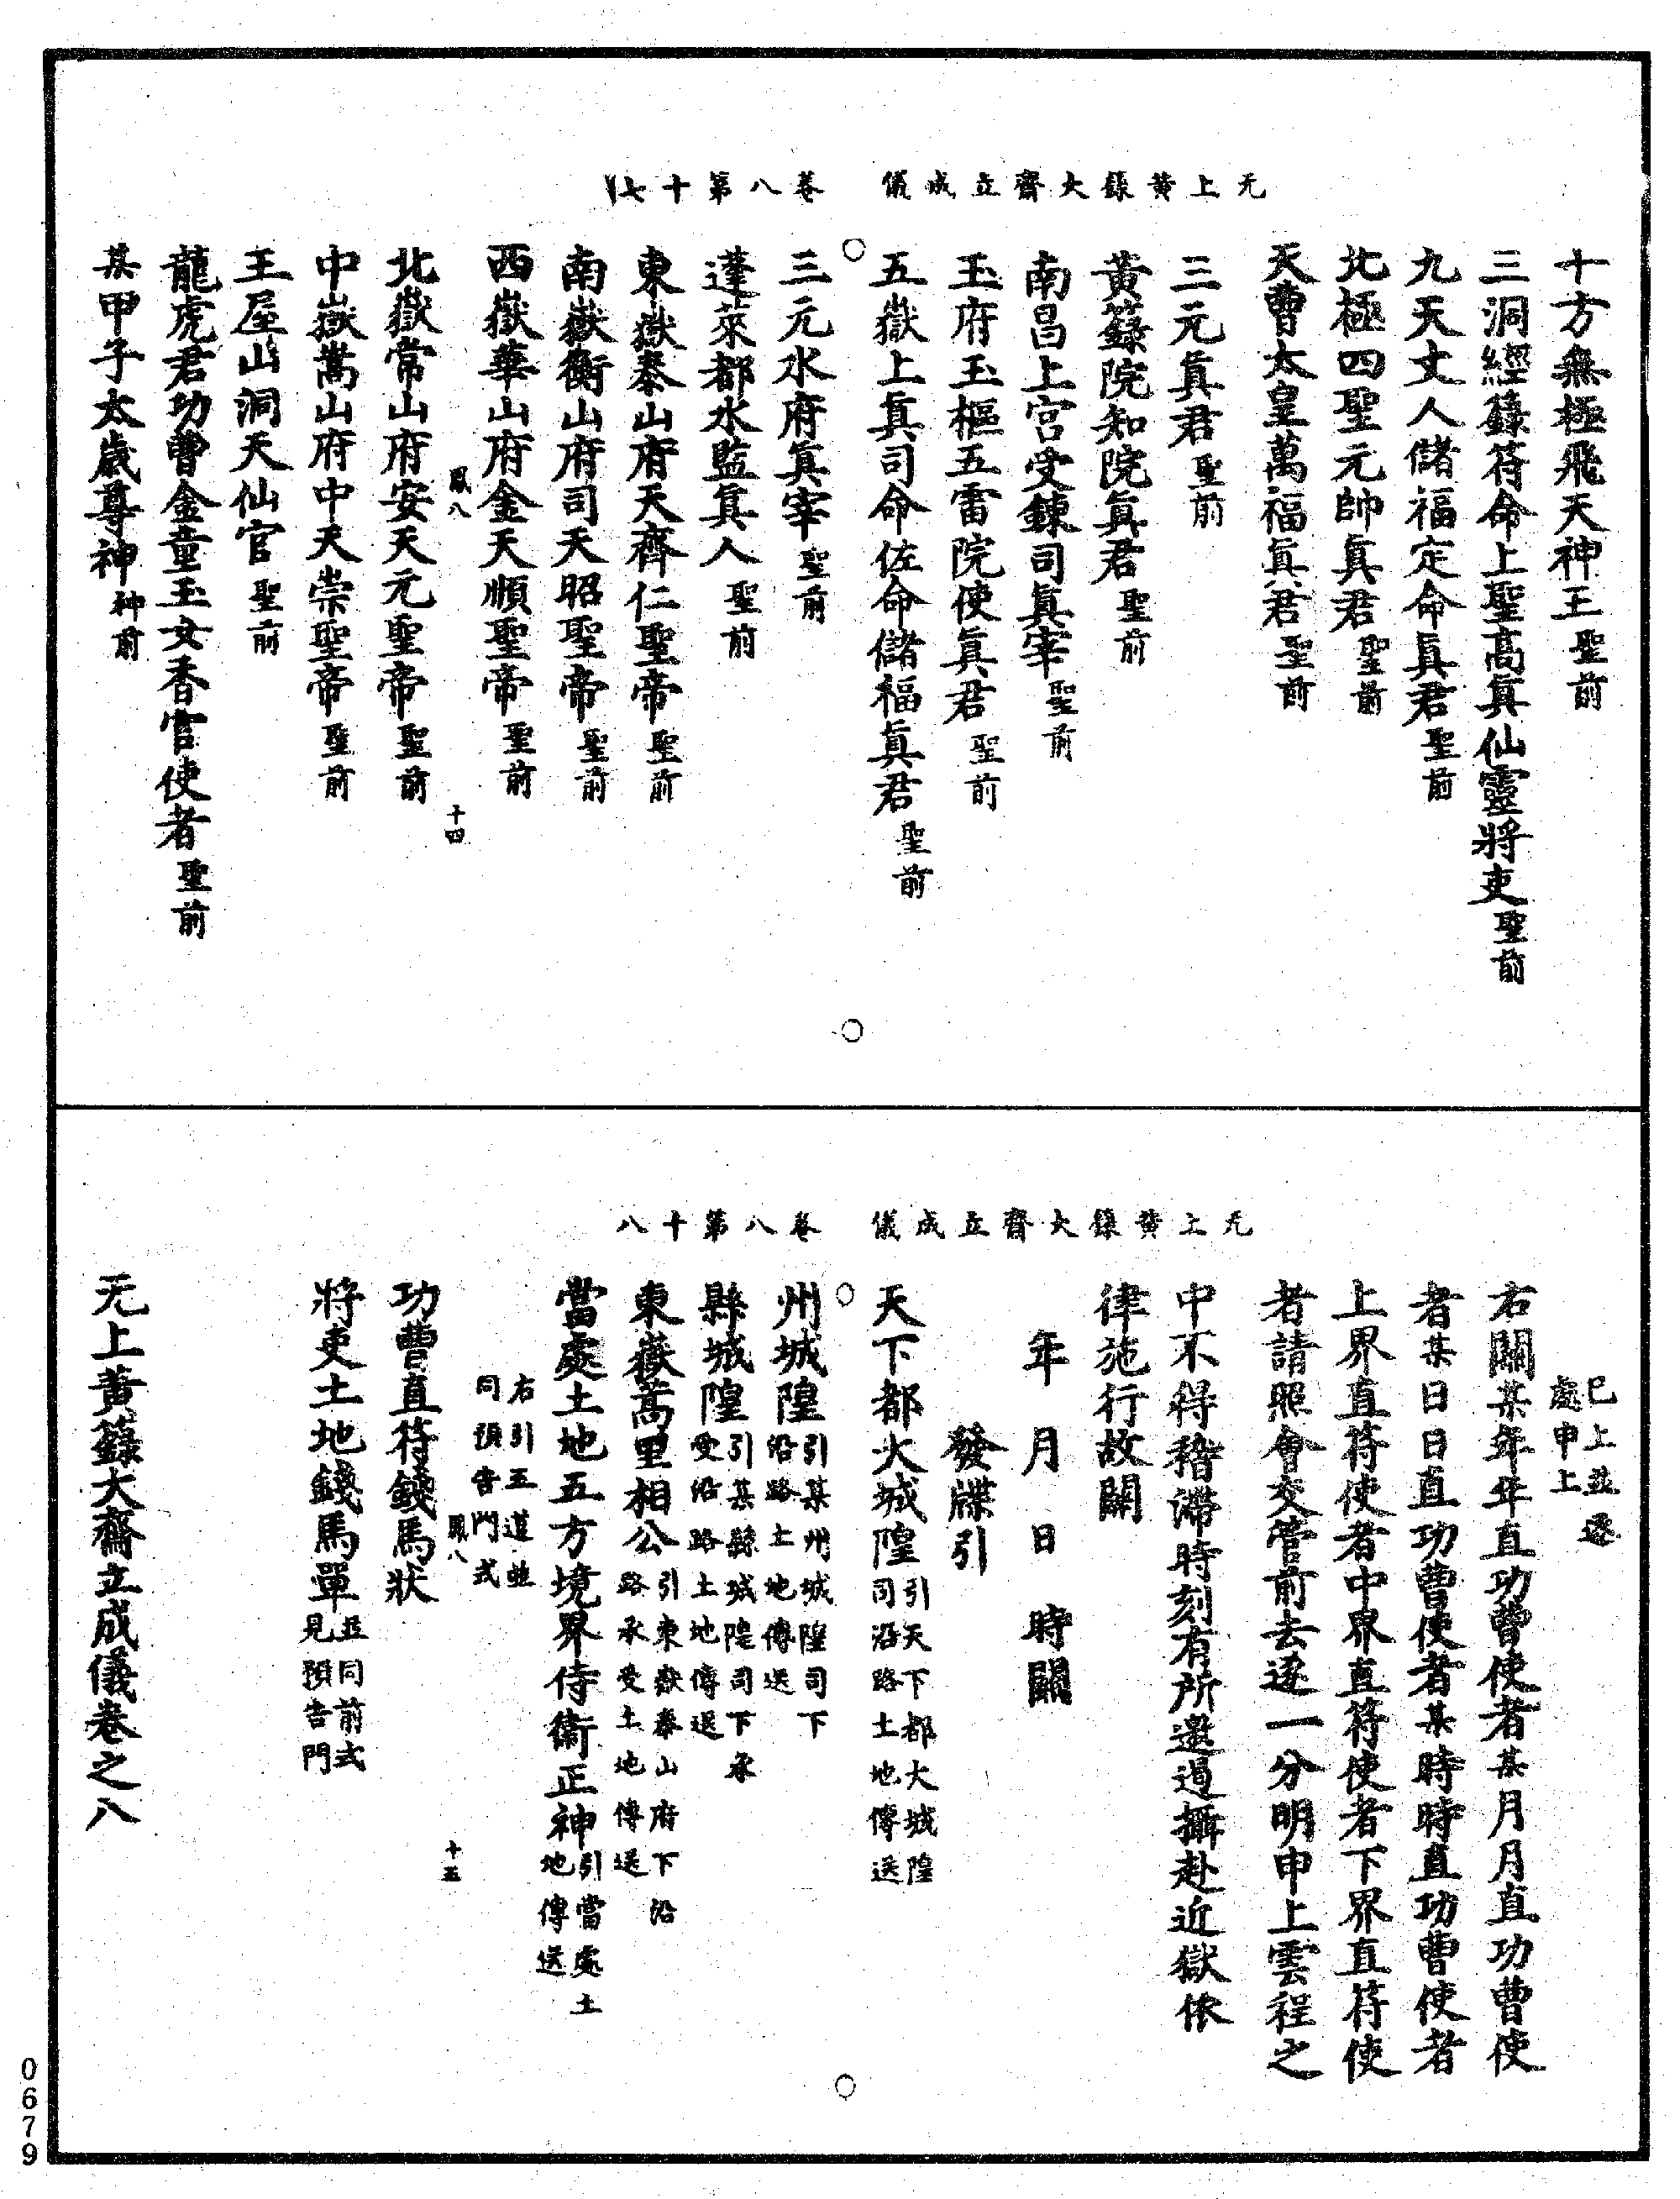 无上黃籙大齋立成儀　卷八第十七
十方無極飛天神王聖前
三洞經籙符命上聖高眞仙靈將吏聖前
九天丈人儲福定命眞君聖前
北極四聖元帥眞君聖前
天曹太皇萬福眞君聖前
三元眞君聖前
黃籙院知院眞君聖前
南昌上宮受鍊司眞宰聖前
玉府玉樞五雷院使眞君聖前
五嶽上眞司命佐命儲福眞君聖前
三元水府眞宰聖前
蓬萊都水監眞人聖前
東嶽泰山府天齊仁聖帝聖前
南嶽衡山府司天昭聖帝聖前
西嶽華山府金天順聖帝聖前
鳳八　十四
北嶽常山府安天元聖帝聖前
中嶽嵩山府中天崇聖帝聖前
王屋山洞天仙官聖前
龍虎君功曹金童玉女香官使者聖前
某甲子太歲尊神神前
无上黃籙大齋立成儀　卷八第十八
已上並逐
處申上
右關某年年直功曹使者某月月直功曹使
者某日日直功曹使者某時時直功曹使者
上界直符使者中界直符使者下界直符使
者請照會交管前去逐一分明申上雲程之
中不得稽滯時刻有所邀遏攝赴近獄依
律施行故關
年　月　日　時關
發牒引
天下都大城隍引天下都大城隍
司沿路土地傳送
州城隍引某州城隍司下
沿路土地傳送
縣城隍引某縣城隍司下承
受沿路土地傳送
東嶽蒿里相公引東嶽泰山府下沿
路承受土地傳送
當處土地五方境界侍衞正神引當處土
地傳送
右引五道並
同預告門式
鳳八　十五
功曹直符錢馬狀
將吏土地錢馬單並同前式
見預告門
无上黃籙大齋立成儀卷之八
0679